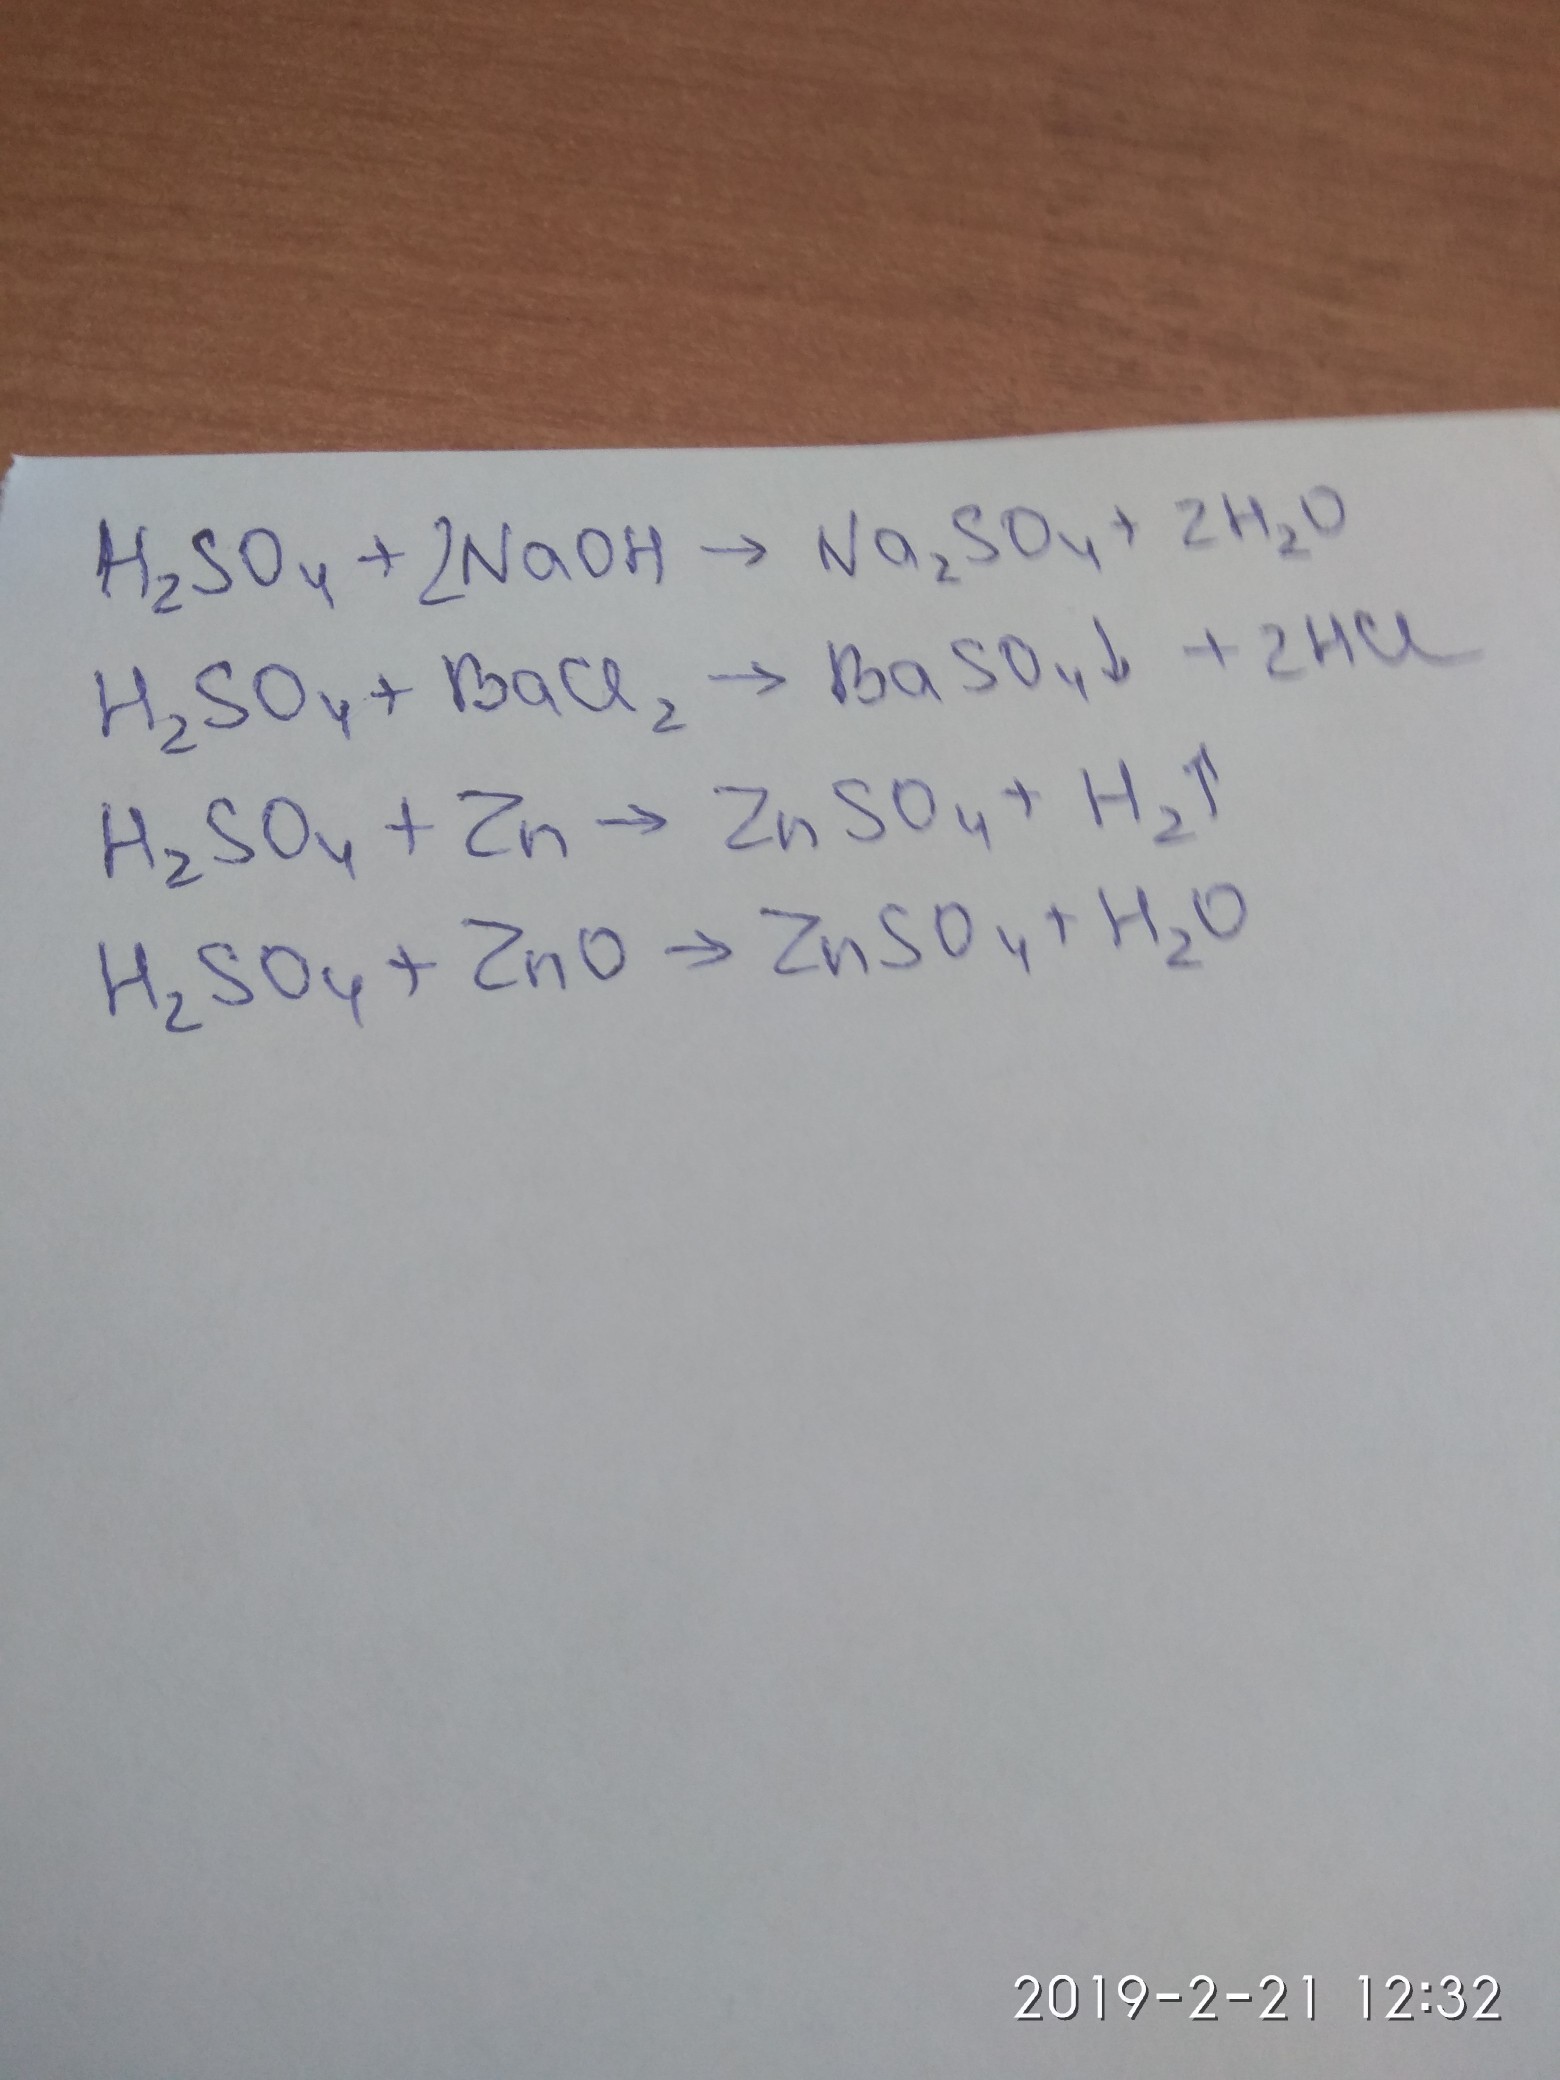 H₂SO₄ + 2NaOH → Na₂SO₄ + 2H₂O
H₂SO₄ + BaCl₂ → BaSO₄↓ + 2HCl
H₂SO₄ + Zn → ZnSO₄ + H₂↑
H₂SO₄ + ZnO → ZnSO₄ + H₂O
2019-2-21 12:32